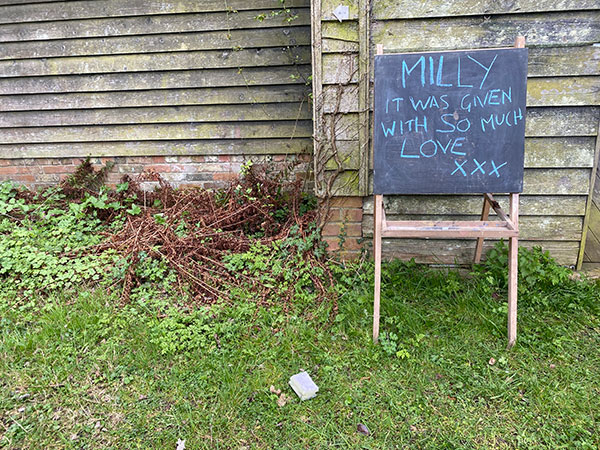 MILLY
IT WAS GIVEN
WITH SO MUCH
LOVE
XXX